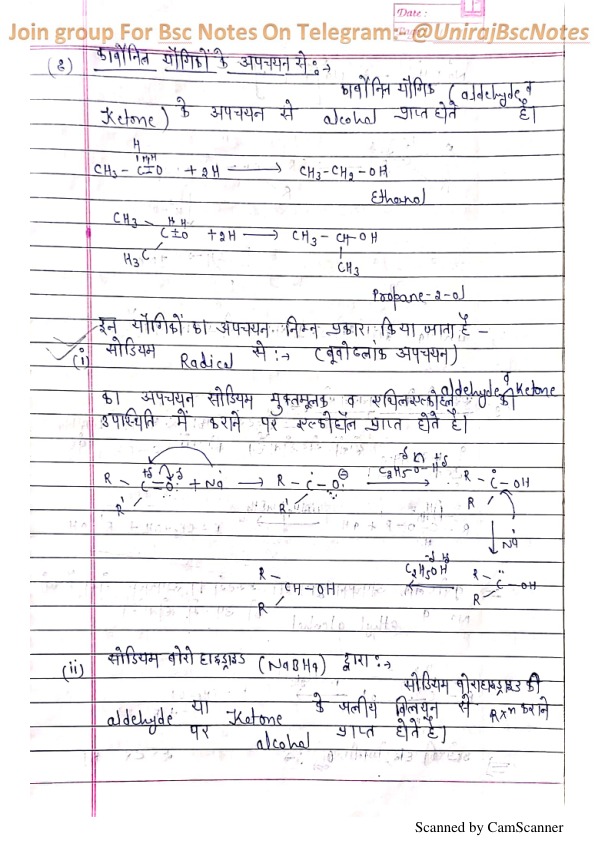 Date :
Join group For Bsc Notes On Telegram:- @UnirajBscNotes
(8) कार्बोनिल यौगिकों के अपचयन से :→
कार्बोनिल यौगिक (aldehyde व
Ketone) के अपचयन से alcohol प्राप्त होते है।
H
CH3 - C=O + 2H → CH3-CH2-OH
Ethanol
CH3 H H
C=O + 2H → CH3 - CH-OH
H3C CH3
Propane-2-ol
इन यौगिकों का अपचयन निम्न प्रकार किया जाता है -
(i) सोडियम Radical से :→ (बूवोब्लांक अपचयन)
aldehyde व Ketone
का अपचयन सोडियम मुक्तमूलक व एथिल एल्कोहॉल की
उपस्थिति में कराने पर एल्कोहॉल प्राप्त होते है।
R - C=O: + Na → R - C - O:⊖ C2H5O-H → R - C - OH
R' R' R
Na
R - CH-OH C2H5OH ← R - C - OH
R R
(ii) सोडियम बोरो हाइड्राइड (NaBH4) द्वारा :→
सोडियम बोराहाइड्राइड की
aldehyde या Ketone के जलीय विलयन से Rxn कराने
पर alcohol प्राप्त होते है।
Scanned by CamScanner